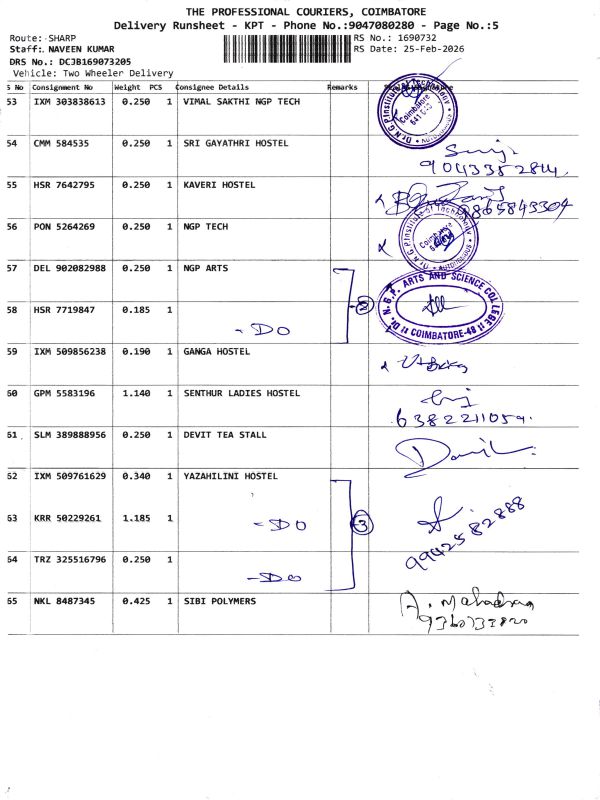 THE PROFESSIONAL COURIERS, COIMBATORE
Delivery Runsheet - KPT - Phone No.:9047080280 - Page No.:5
Route: SHARP RS No.: 1690732
Staff: NAVEEN KUMAR RS Date: 25-Feb-2026
DRS No.: DCJB169073205
Vehicle: Two Wheeler Delivery
S No Consignment No Weight PCS Consignee Details Remarks
53 IXM 303838613 0.250 1 VIMAL SAKTHI NGP TECH
Dr. N.G.P. Institute of Technology
Coimbatore
54 CMM 584535 0.250 1 SRI GAYATHRI HOSTEL
9043352844
55 HSR 7642795 0.250 1 KAVERI HOSTEL
9865843304
56 PON 5264269 0.250 1 NGP TECH
Dr. N.G.P. Institute of Technology
Coimbatore
57 DEL 902082988 0.250 1 NGP ARTS
Dr. N.G.P. ARTS AND SCIENCE COLLEGE
COIMBATORE-48
58 HSR 7719847 0.185 1 - DO 2
59 IXM 509856238 0.190 1 GANGA HOSTEL
60 GPM 5583196 1.140 1 SENTHUR LADIES HOSTEL
6382211059
61 SLM 389888956 0.250 1 DEVIT TEA STALL
62 IXM 509761629 0.340 1 YAZAHILINI HOSTEL
63 KRR 50229261 1.185 1 - DO 3
9942582888
64 TRZ 325516796 0.250 1 - DO
65 NKL 8487345 0.425 1 SIBI POLYMERS